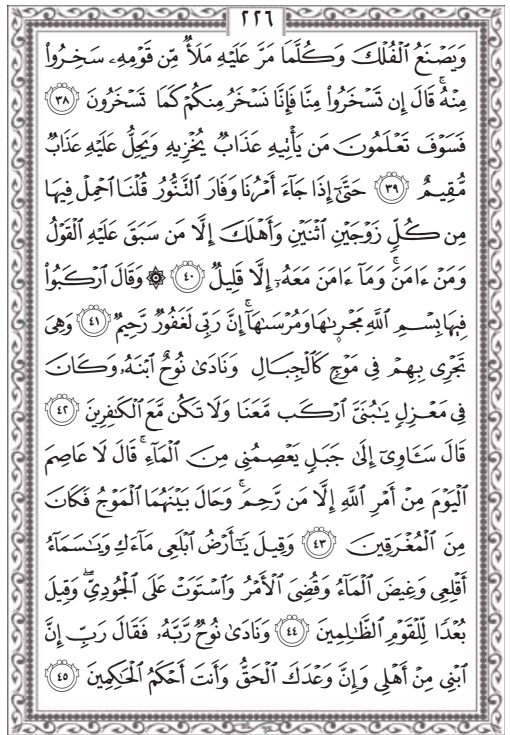 ٢٢٦
وَيَصْنَعُ ٱلْفُلْكَ وَكُلَّمَا مَرَّ عَلَيْهِ مَلَأٌ مِّن قَوْمِهِۦ سَخِرُوا۟
مِنْهُ ۚ قَالَ إِن تَسْخَرُوا۟ مِنَّا فَإِنَّا نَسْخَرُ مِنكُمْ كَمَا تَسْخَرُونَ ٣٨
فَسَوْفَ تَعْلَمُونَ مَن يَأْتِيهِ عَذَابٌ يُخْزِيهِ وَيَحِلُّ عَلَيْهِ عَذَابٌ
مُّقِيمٌ ٣٩ حَتَّىٰٓ إِذَا جَآءَ أَمْرُنَا وَفَارَ ٱلتَّنُّورُ قُلْنَا ٱحْمِلْ فِيهَا
مِن كُلٍّ زَوْجَيْنِ ٱثْنَيْنِ وَأَهْلَكَ إِلَّا مَن سَبَقَ عَلَيْهِ ٱلْقَوْلُ
وَمَنْ ءَامَنَ ۚ وَمَآ ءَامَنَ مَعَهُۥٓ إِلَّا قَلِيلٌ ٤٠ ۞ وَقَالَ ٱرْكَبُوا۟
فِيهَا بِسْمِ ٱللَّهِ مَجْر۪ىٰهَا وَمُرْسَىٰهَآ ۚ إِنَّ رَبِّى لَغَفُورٌ رَّحِيمٌ ٤١ وَهِىَ
تَجْرِى بِهِمْ فِى مَوْجٍ كَٱلْجِبَالِ وَنَادَىٰ نُوحٌ ٱبْنَهُۥ وَكَانَ
فِى مَعْزِلٍ يَٰبُنَىَّ ٱرْكَب مَّعَنَا وَلَا تَكُن مَّعَ ٱلْكَٰفِرِينَ ٤٢
قَالَ سَـَٔاوِىٓ إِلَىٰ جَبَلٍ يَعْصِمُنِى مِنَ ٱلْمَآءِ ۚ قَالَ لَا عَاصِمَ
ٱلْيَوْمَ مِنْ أَمْرِ ٱللَّهِ إِلَّا مَن رَّحِمَ ۚ وَحَالَ بَيْنَهُمَا ٱلْمَوْجُ فَكَانَ
مِنَ ٱلْمُغْرَقِينَ ٤٣ وَقِيلَ يَٰٓأَرْضُ ٱبْلَعِى مَآءَكِ وَيَٰسَمَآءُ
أَقْلِعِى وَغِيضَ ٱلْمَآءُ وَقُضِىَ ٱلْأَمْرُ وَٱسْتَوَتْ عَلَى ٱلْجُودِىِّ ۖ وَقِيلَ
بُعْدًا لِّلْقَوْمِ ٱلظَّٰلِمِينَ ٤٤ وَنَادَىٰ نُوحٌ رَّبَّهُۥ فَقَالَ رَبِّ إِنَّ
ٱبْنِى مِنْ أَهْلِى وَإِنَّ وَعْدَكَ ٱلْحَقُّ وَأَنتَ أَحْكَمُ ٱلْحَٰكِمِينَ ٤٥